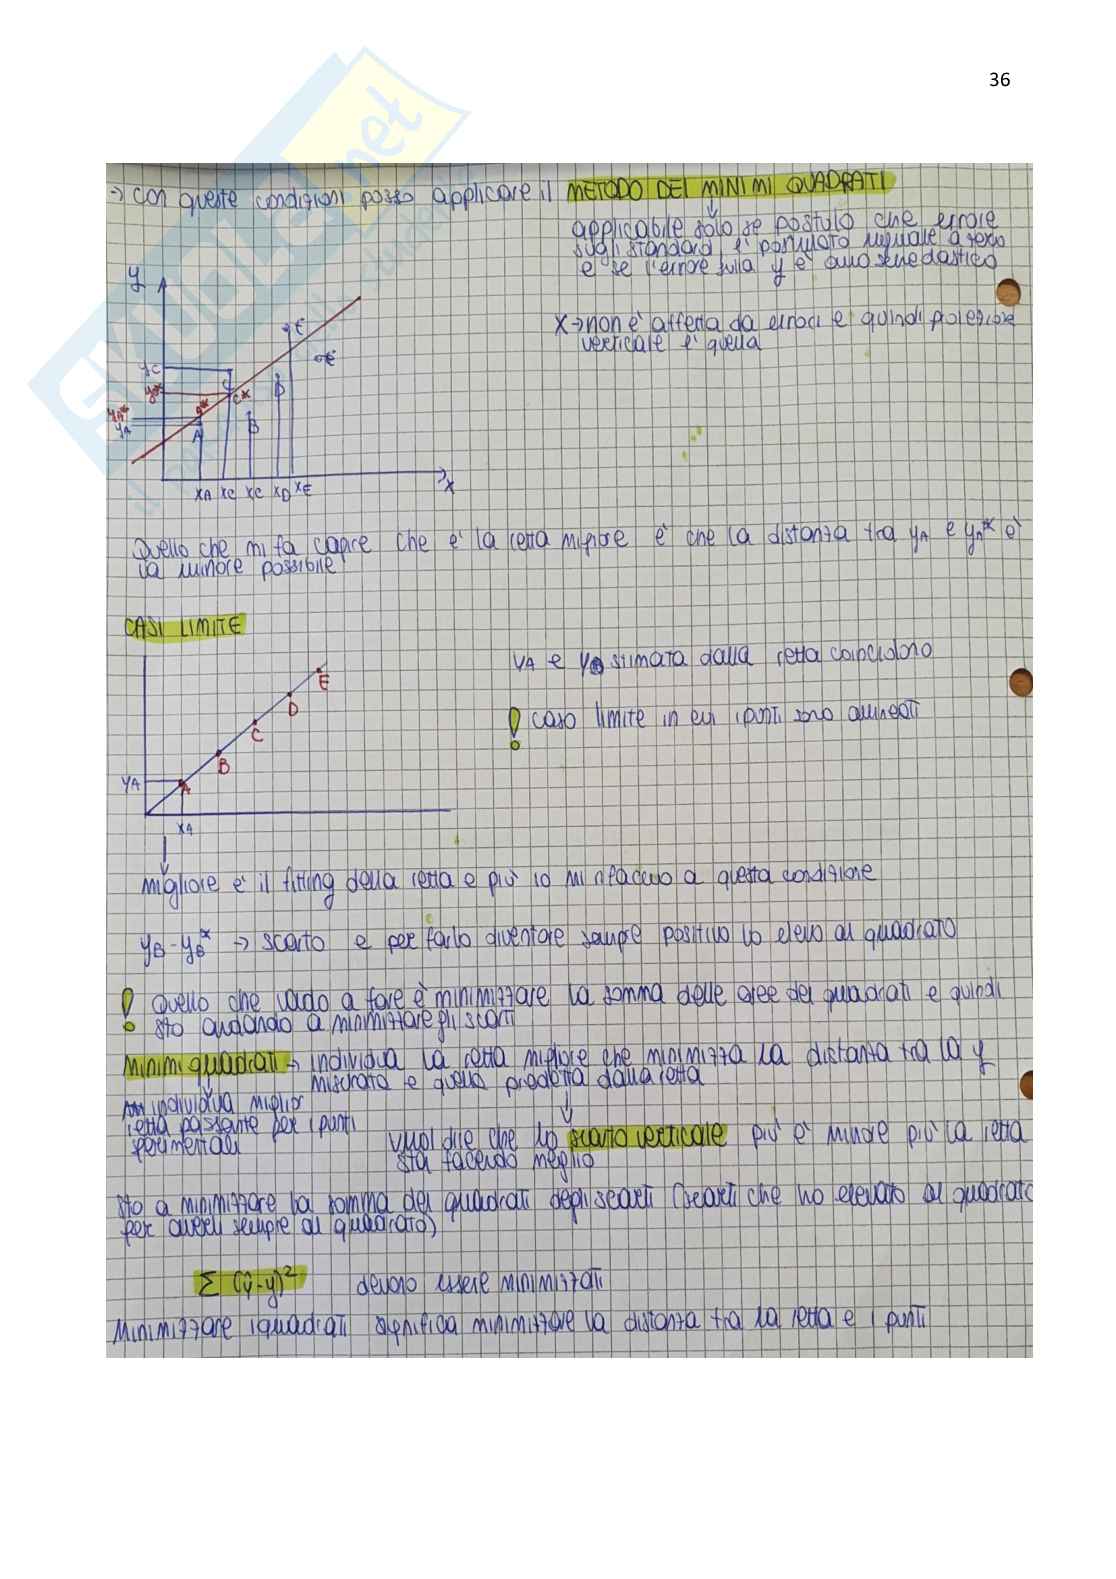 36
SKUOLA.net
→ con queste condizioni posso applicare il METODO DEI MINIMI QUADRATI
applicabile solo se postulo che errore
sugli standard è postulato uguale a zero
e se l'errore sulla y è omoschedastico
y
x→non è affetta da errori e quindi proiezione
verticale è quella
E
E
yc
C
D
C*
A*
yA*
yA
A
B
x
xA xc xc xD xE
Quello che mi fa capire che è la retta migliore è che la distanza tra yA e yA* è
la minore possibile
CASI LIMITE
yA e stimata dalla retta coincidono
! caso limite in cui i punti sono allineati
E
D
C
B
A
yA
xA
migliore è il fitting della retta e più io mi rifaccio a questa condizione
yB-yB* → scarto e per farlo diventare sempre positivo lo elevo al quadrato
! Quello che vado a fare è minimizzare la somma delle aree dei quadrati e quindi
sto andando a minimizzare gli scarti
Minimi quadrati → individua la retta migliore che minimizza la distanza tra la y
misurata e quella predetta dalla retta
individua miglior
retta passante per i punti
sperimentali
vuol dire che lo scarto verticale più è minore più la retta
sta facendo meglio
Sto a minimizzare la somma dei quadrati degli scarti (scarti che ho elevato al quadrato
per averli sempre al quadrato)
Σ (ŷ-y)² devono essere minimizzati
Minimizzare i quadrati significa minimizzare la distanza tra la retta e i punti